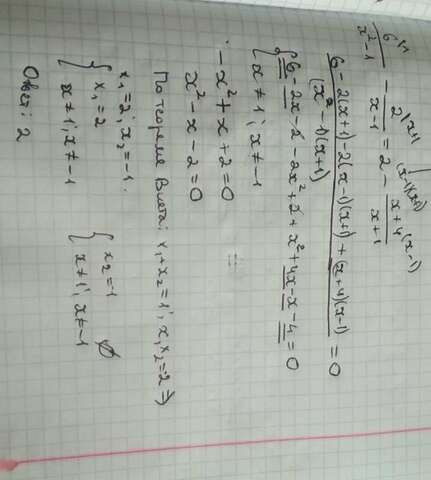 6/(x²-1) - 2/(x-1) = 2 - (x+4)/(x+1)
(6-2(x+1)-2(x-1)(x+1)+(x+4)(x-1))/((x²-1)(x+1)) = 0
{6-2x-2-2x²+2+x²+4x-x-4=0
x≠1; x≠-1
-x²+x+2=0
x²-x-2=0
По теореме Виета: x₁+x₂=1; x₁x₂=-2 ⇒
x₁=2; x₂=-1.
{x₁=2
x≠1; x≠-1
{x₂=-1
x≠1; x≠-1 ∅
Ответ: 2